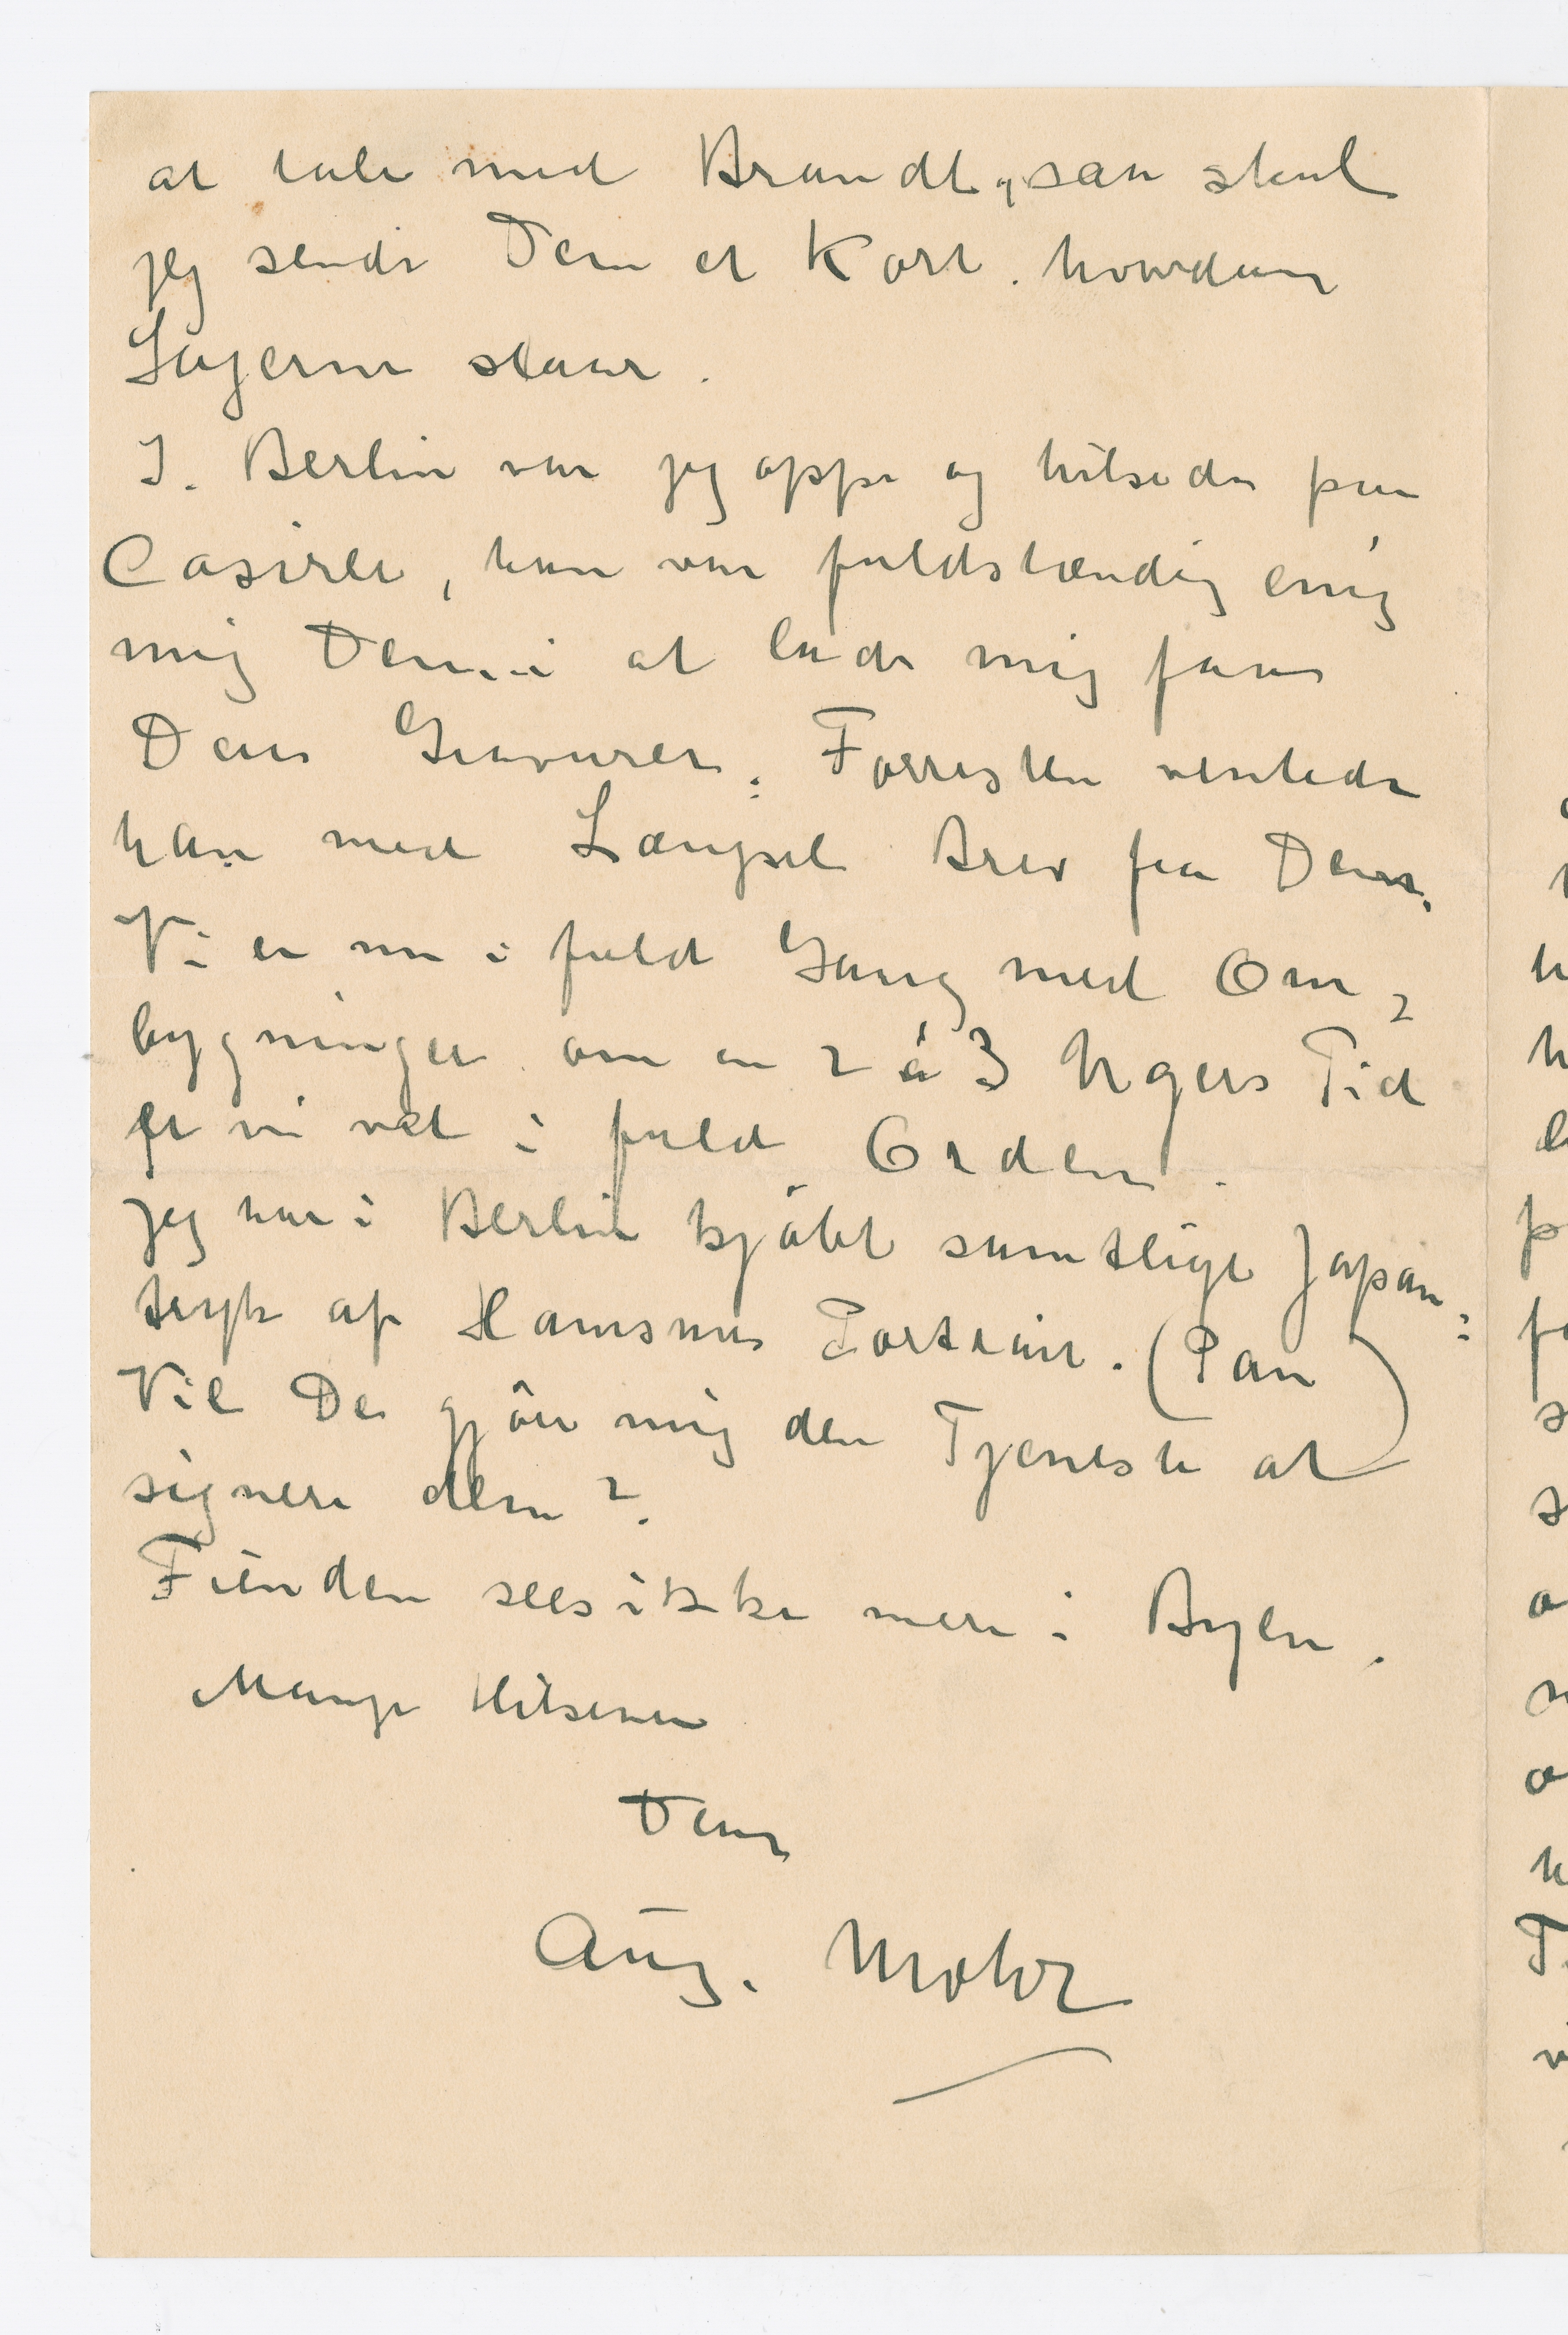 at tale med Brandt, saa skal
jeg sende Dem et Kort. hvordan
Sagerne staar.
I. Berlin var jeg oppe og hilsede paa
Casirer, han var fuldstændig enig
mig Dem i at lade mig faae
Deres Gravurer. Forresten ventede
han med Længsel Brev fra Dem.
Vi er nu i fuld Gang med Om-
bygningen om en 2 á 3 Ugers Tid
er vi vel i fuld Orden.
jeg har i Berlin kjöbt samtlige Japan-
tryk af Hamsuns Portrait. (Pan)
Vil De gjöre mig den Tjeneste at
signere dem?
Fienden sees ikke mere i Byen.
Mange Hilsener
Deres
Aug. Mohr